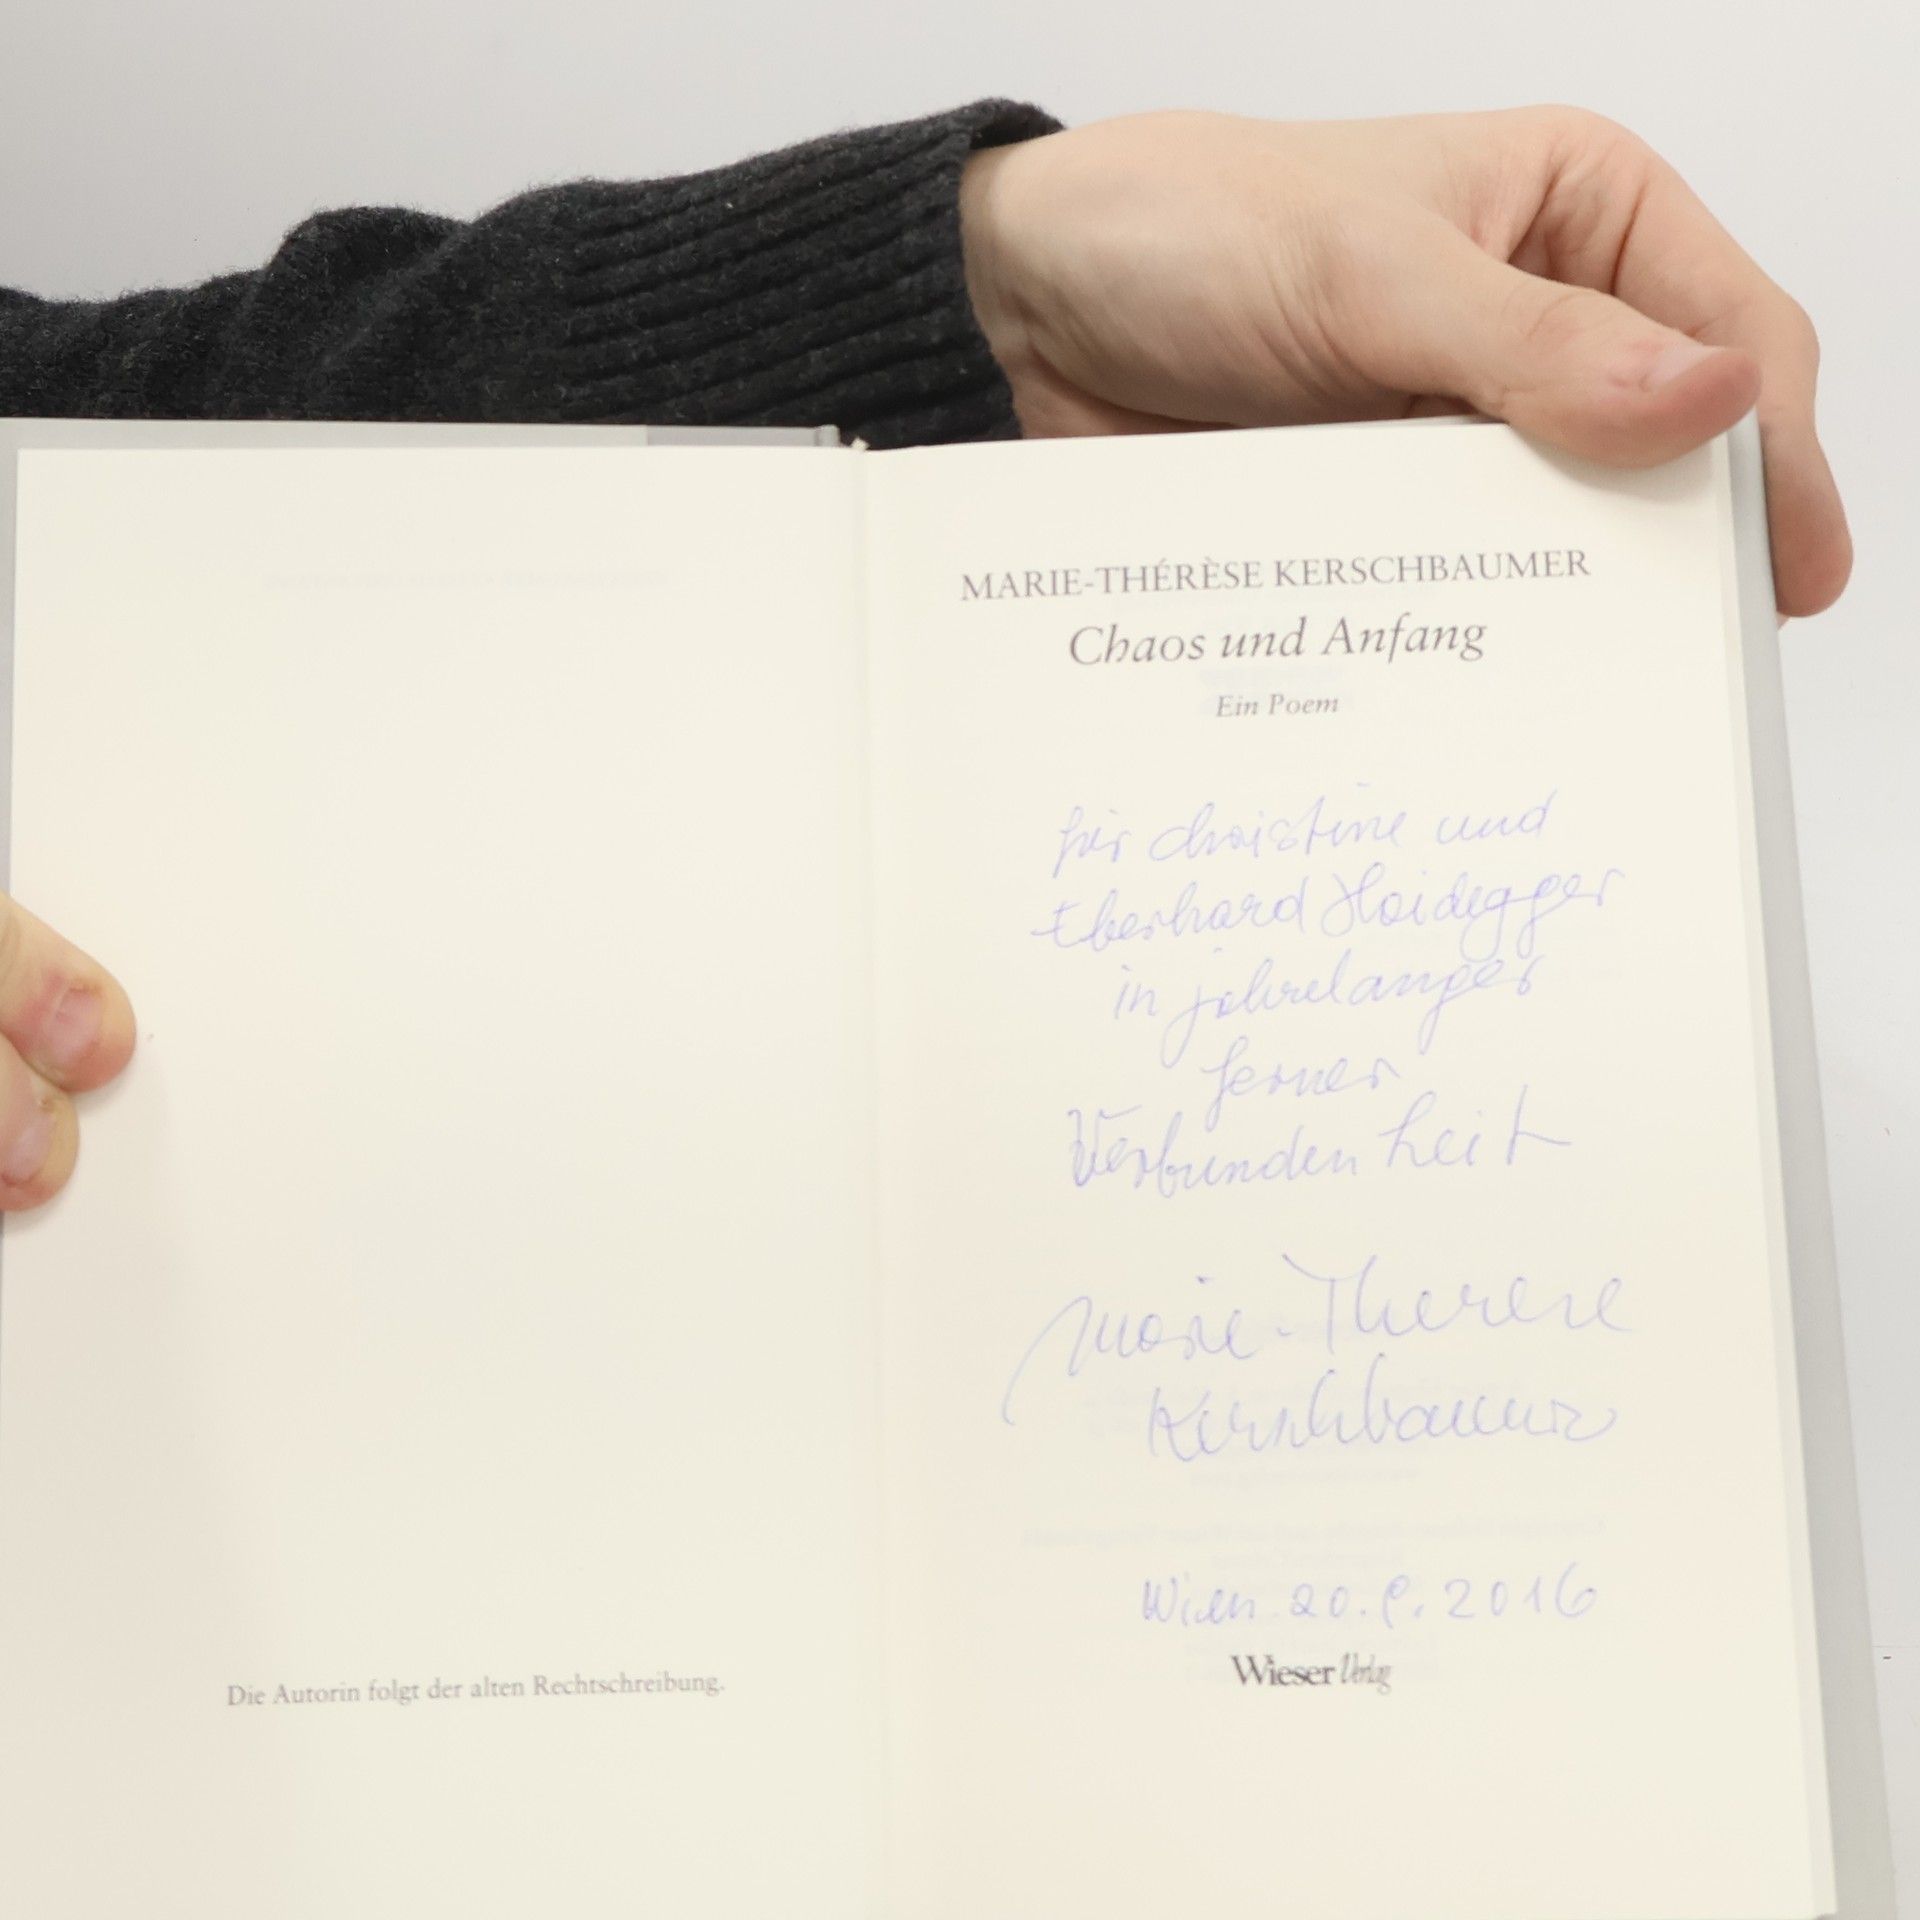 Die Autorin folgt der alten Rechtschreibung.
MARIE-THÉRÈSE KERSCHBAUMER
Chaos und Anfang
Ein Poem
für Christine und
Eberhard Haidegger
in jahrelanger
ferner
Verbundenheit
Marie-Therese
Kerschbaumer
Wien 20. 2016
Wieser Verlag